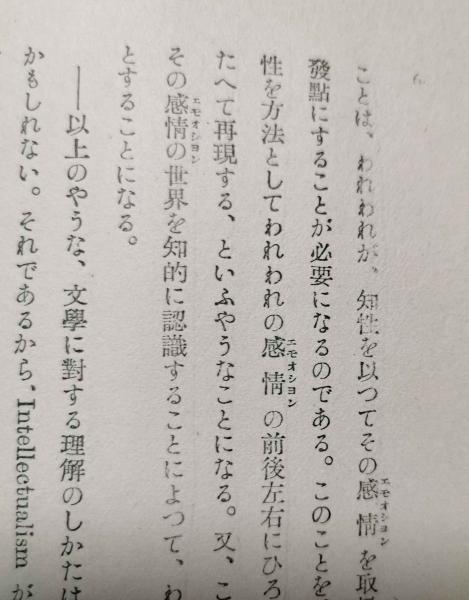 ことは、われわれが、知性を以つてその感情を取
發點にすることが必要になるのである。このことを
性を方法としてわれわれの感情の前後左右にひろ
たへて再現する、といふやうなことになる。又、こ
その感情の世界を知的に認識することによつて、わ
とすることになる。
――以上のやうな、文學に對する理解のしかたは
かもしれない。それであるから、Intellectualism が